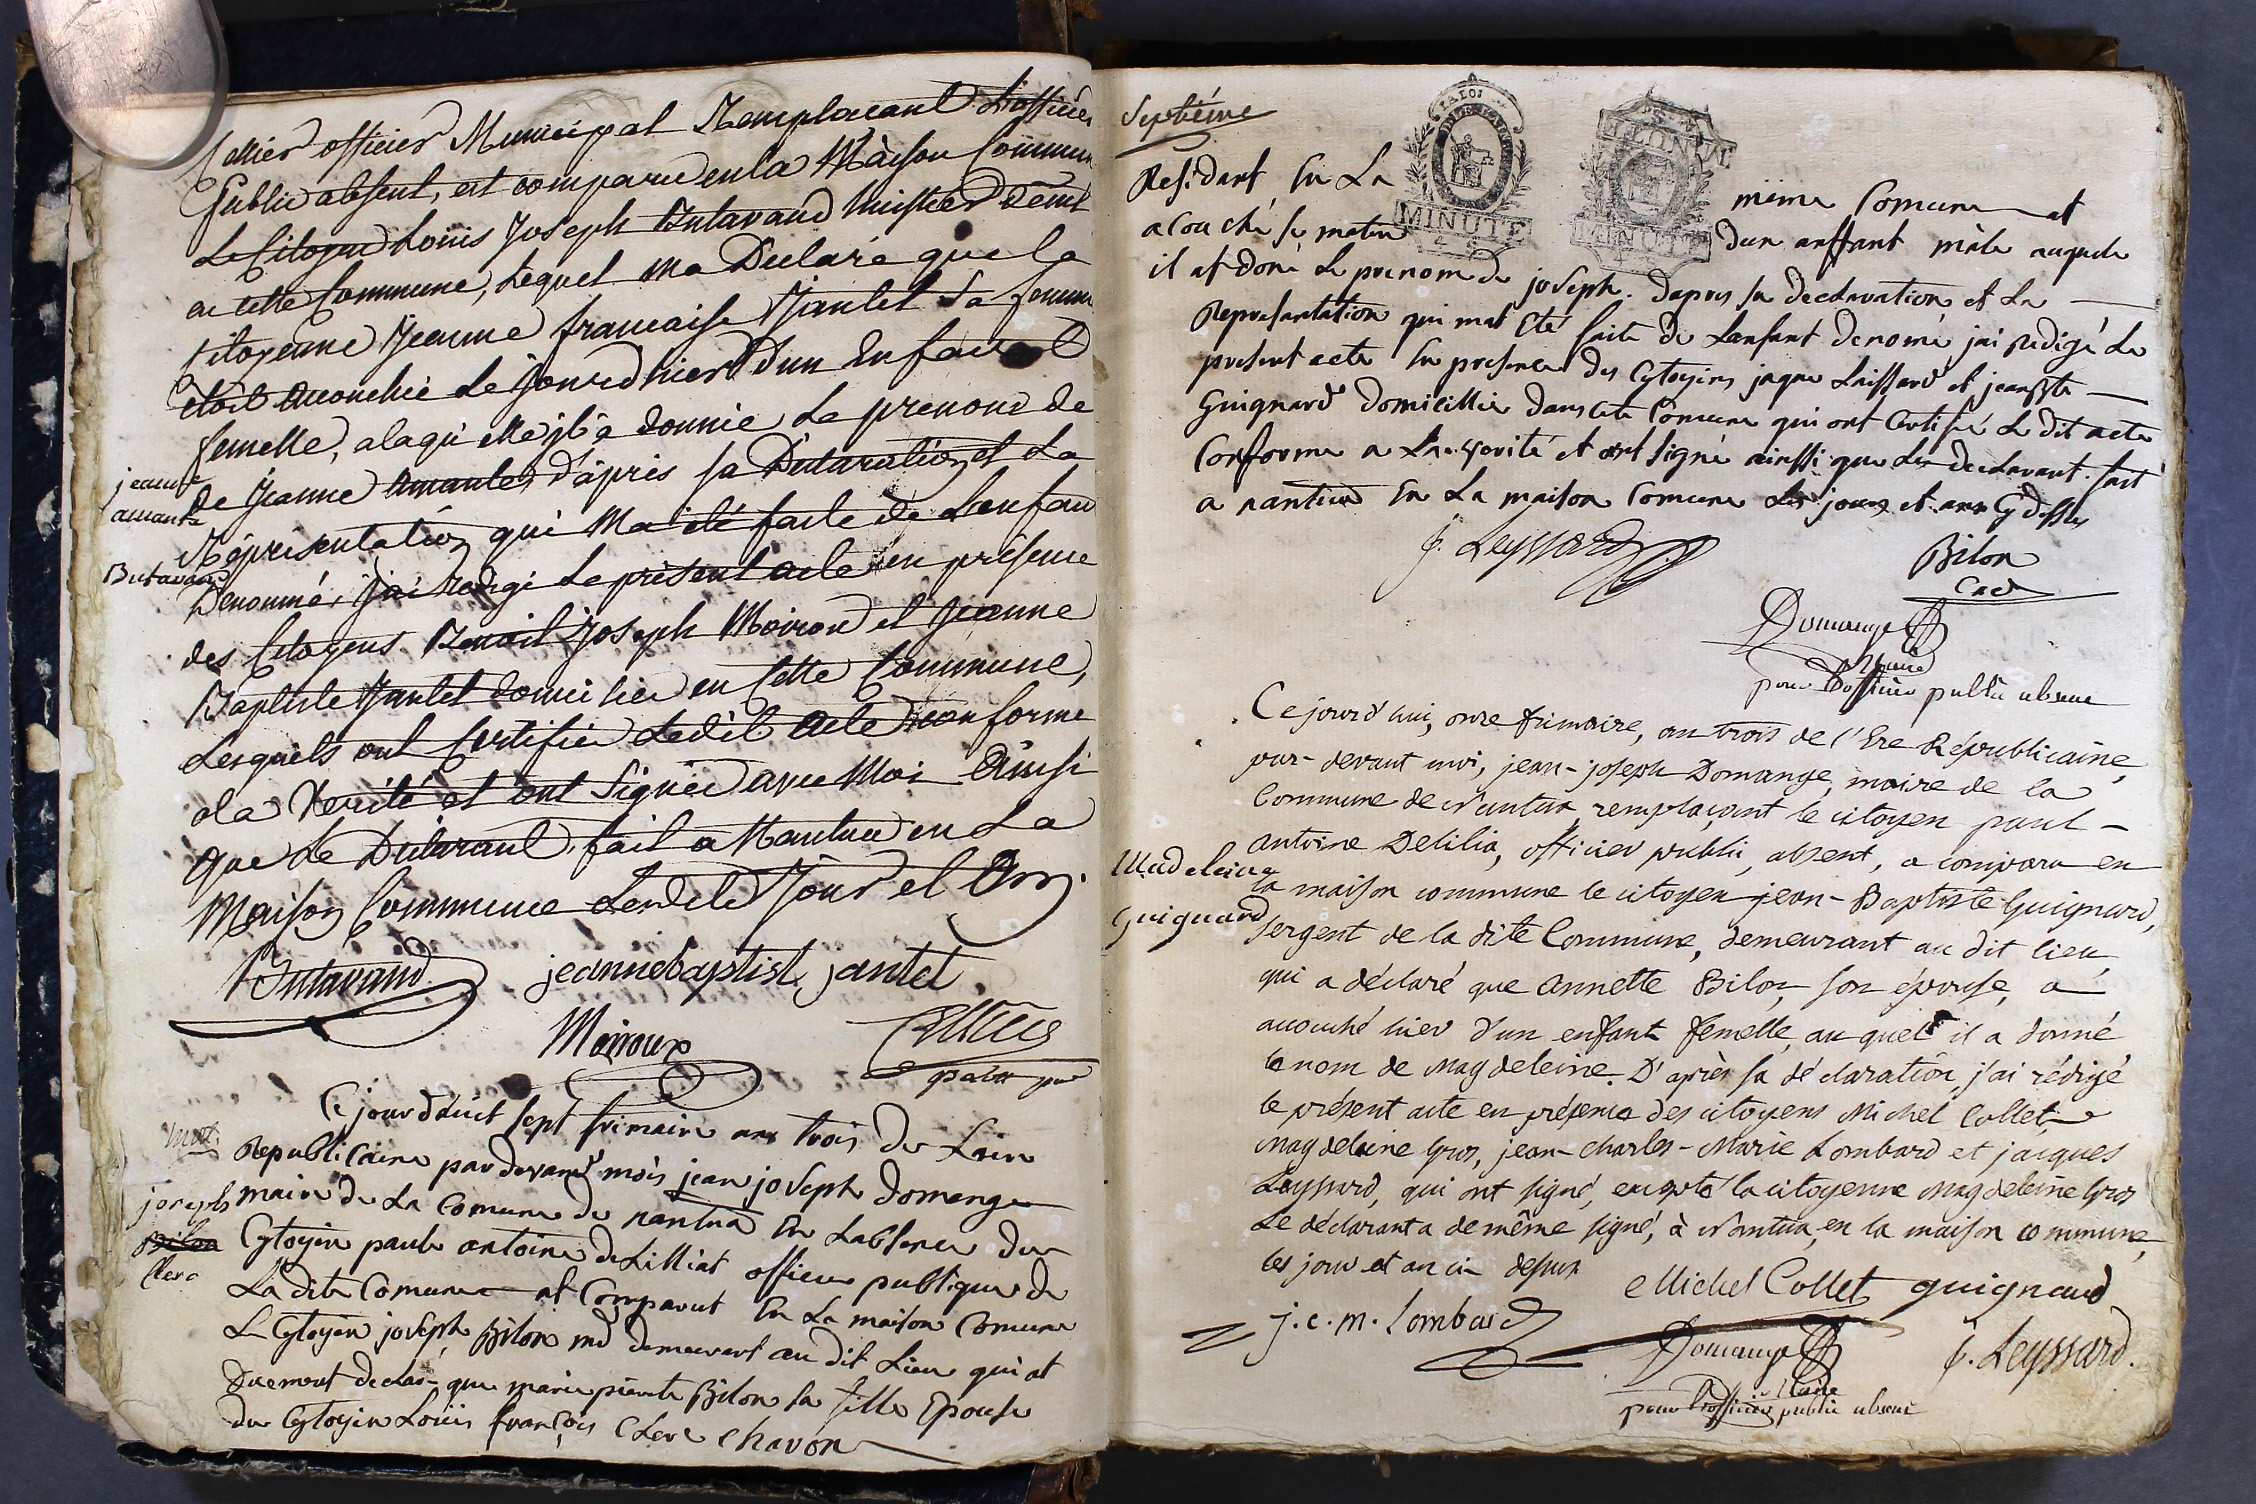 Cellier officier Municipal Remplacant L'officier
Public absent, est comparu en la Maison Commune
Le Citoyen Louis Joseph Butavand huissier dem.t
en cette Commune, Lequel ma Déclaré que la
citoyenne Jeanne francaise Jantet Sa femme
étoit accouchée Le Jourd'hier d'un Enfant
femelle, alaquelle il a donnée Le prenom de
de Jeanne Amante, d'après sa Déclaration et La
Répresentation qui Ma été faite de Lenfant
Denommé, J'ai Redigé Le présent acte en présence
des Citoyens Benoit Joseph Moirou et Jeanne
Baptiste Jantet domicilié en Cette Commune,
Lesquels ont Certifié Ledit acte conforme
ala Verité et ont Signée avec Moi Ainsi
que Le Déclarant, fait a Nantua en La
Maison Commune Lesdits Jour et An.
jeanne
amante
Butavand
Butavand
jeannebaptiste jantet
Moiroux
Cellier
Ce jourdhuit sept frimaire ans trois de Laire
Republicaine par devant mois jean joseph domenge
maire de La Comune de nantua En Labsence du
Cytoyin paule antoine deLilliat officier publique de
La dite Comune at Comparut En La maison Comune
Le Cytoyin joseph Bilon md demeurant au dit Lieu qui at
duement declaré que marie pierrete Bilon sa fille Epouse
du Cytoyin Loüis françois Clerc chavon
joseph
Bilon
Clerc
Septiéme
LA LOI
MINUTE
MINUTE
Residant En La même Comune at
acouché se matin dun anffant mâle auquele
il at doné Le prenom de joseph. dapres sa declaration et La
Represantation qui mat été faite de Lanfant denomé jai redigé Le
present acte En presence des Cytoyins jaque Laissard et jean Bte
Guignard domicillié dans cete Comune qui ont Certifié Le dit acte
Conforme a La verité et ont signé ainssi que Le declarant. fait
a nantua En La maison Comune Les jours et ans Cy dessus
j. Leyssard
Bilon
Cadet
Domange
Maire
pour L'officier public absent
Ce jourd'hui, onze frimaire, an trois de l'Ere Républicaine,
par-devant moi, jean-joseph Domange, maire de la
Commune de Nantua, remplaçant le citoyen paul-
antoine Delilia, officier public, absent, a comparu en
la maison commune le citoyen jean-Baptiste Guignard,
sergent de la dite Commune, demeurant au dit lieu,
qui a déclaré que Annette Bilon, son épouse, a
accouché hier d'un enfant femelle, au quel il a donné
le nom de Magdeleine. D'après sa déclaration, j'ai rédigé
le présent acte en présence des citoyens Michel Collet,
Magdeleine Gros, jean-charles-Marie Lombard et jacques
Leyssard, qui ont signé, excepté la citoyenne Magdeleine Gros
Le déclarant a de même signé, à Nantua, en la maison commune,
les jour et an ci dessus
Madeleine
Guignard
Michel Collet
guignard
j. c. m. Lombard
Domange
Maire
pour l'officier public absent
j. Leyssard.